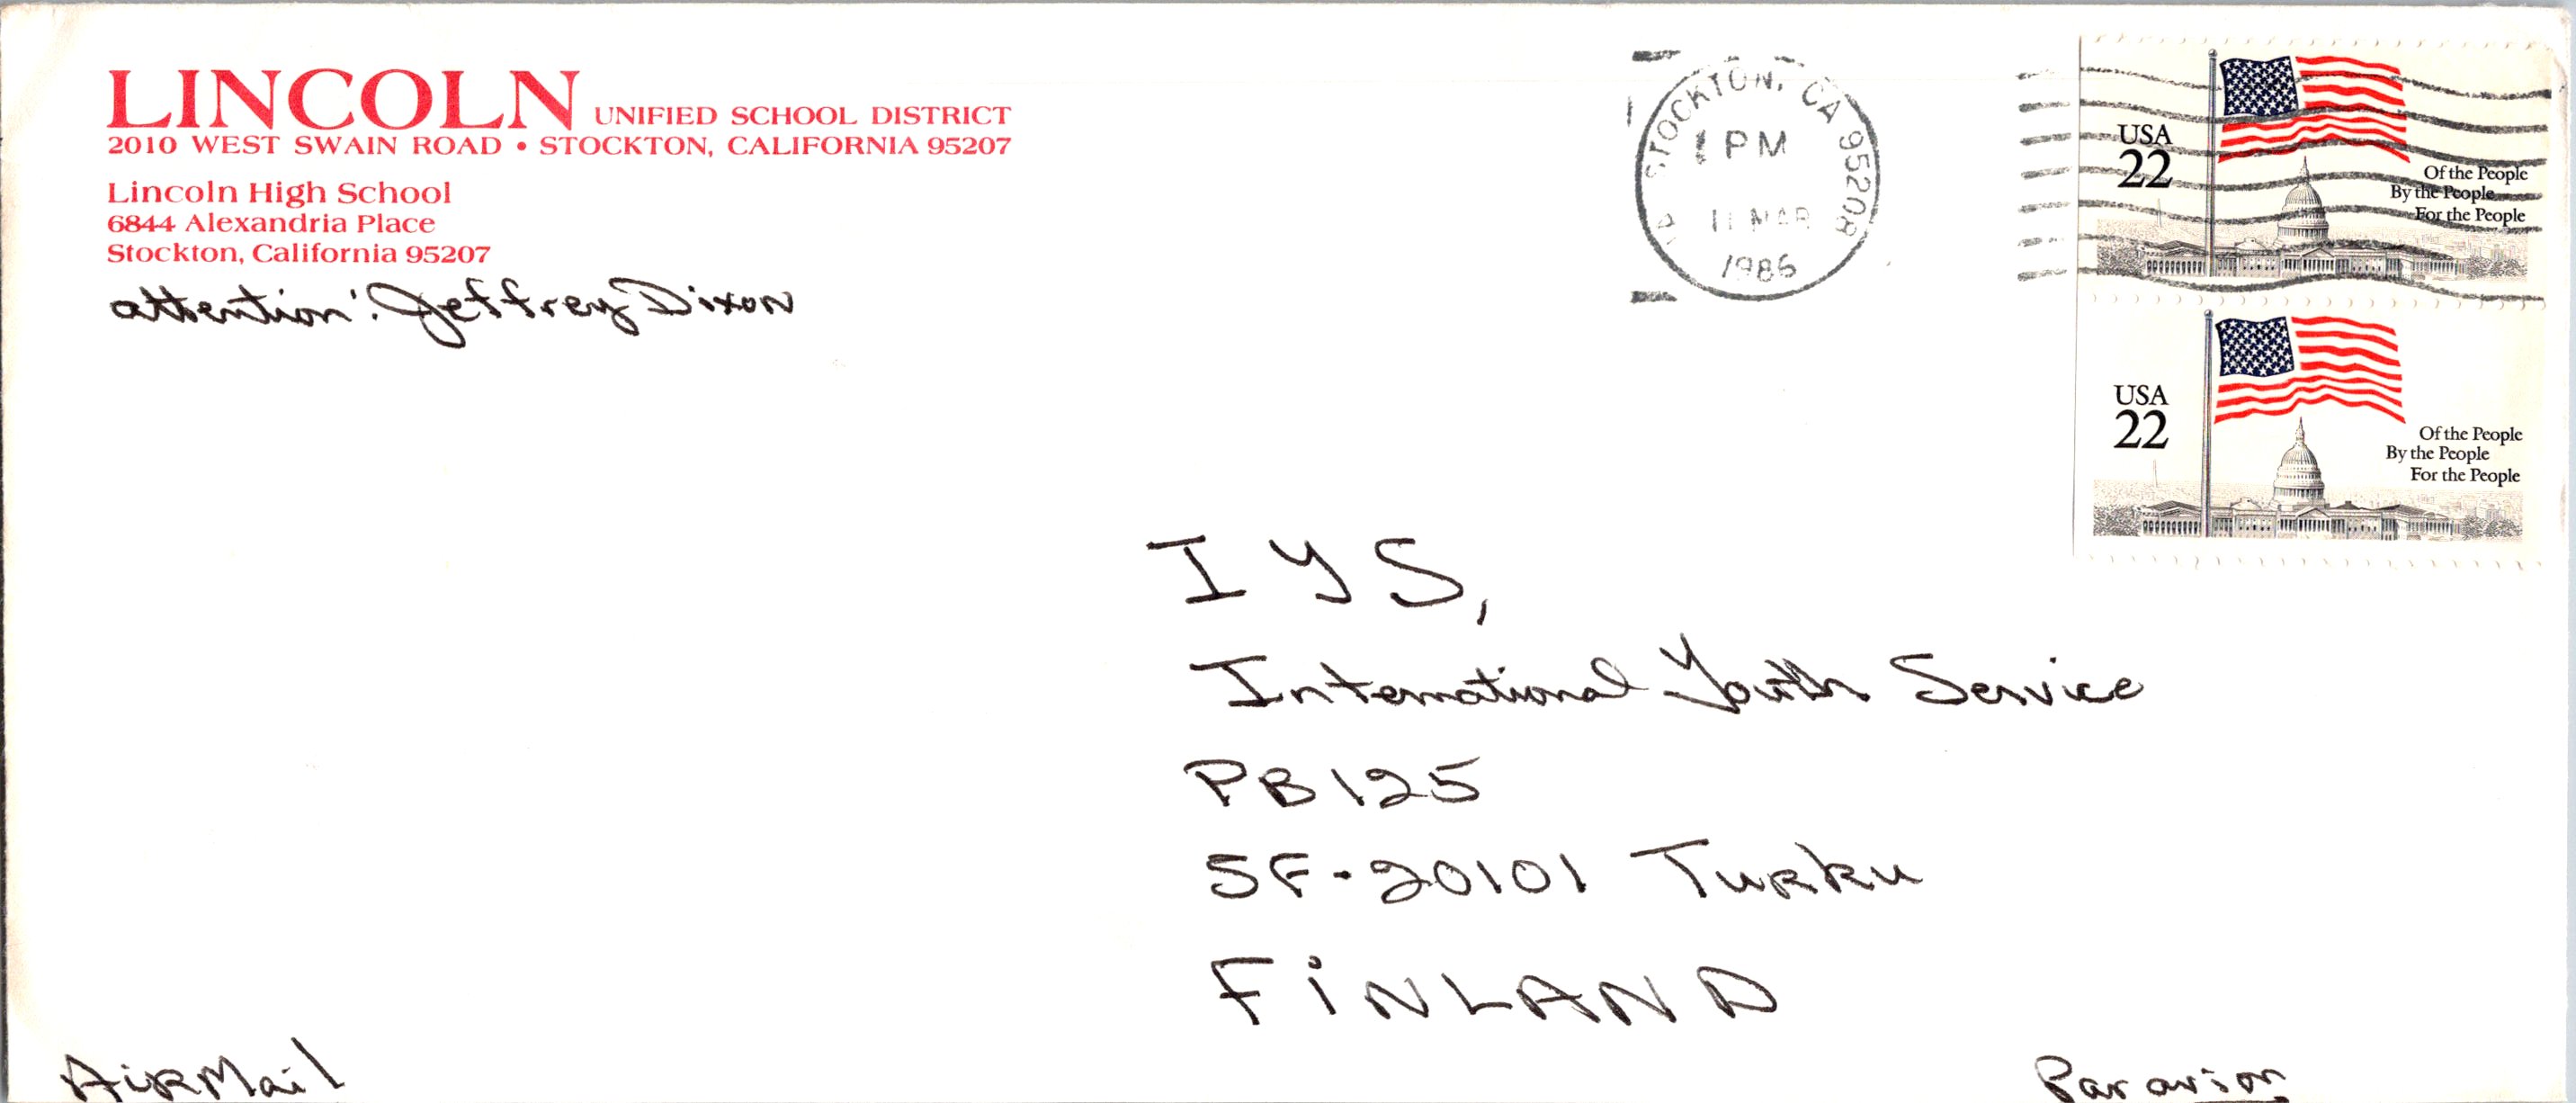 LINCOLN UNIFIED SCHOOL DISTRICT
2010 WEST SWAIN ROAD • STOCKTON, CALIFORNIA 95207
Lincoln High School
6844 Alexandria Place
Stockton, California 95207
attention: Jeffrey Dixon
STOCKTON, CA 95208
PM
11 MAR
1986
USA
22
Of the People
By the People
For the People
USA
22
Of the People
By the People
For the People
IYS,
International Youth Service
PB 125
SF-20101 Turku
FiNLAND
AiRMail
Par avion